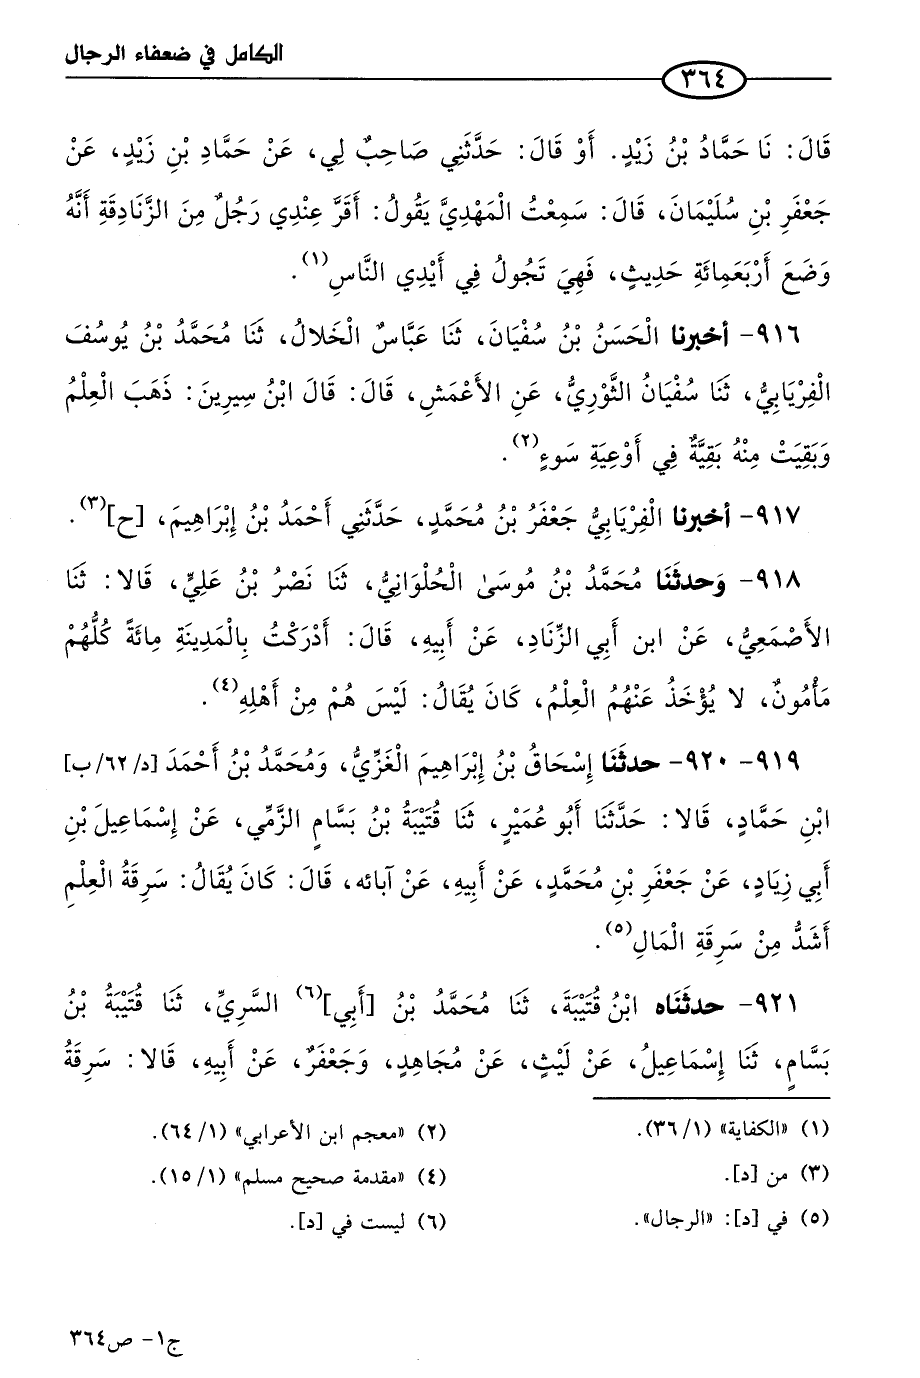 الكامل في ضعفاء الرجال
٣٦٤
قَالَ: نَا حَمَّادُ بْنُ زَيْدٍ. أَوْ قَالَ: حَدَّثَنِي صَاحِبٌ لِي، عَنْ حَمَّادِ بْنِ زَيْدٍ، عَنْ
جَعْفَرِ بْنِ سُلَيْمَانَ، قَالَ: سَمِعْتُ الْمَهْدِيَّ يَقُولُ: أَقَرَّ عِنْدِي رَجُلٌ مِنَ الزَّنَادِقَةِ أَنَّهُ
وَضَعَ أَرْبَعَمِائَةِ حَدِيثٍ، فَهِيَ تَجُولُ فِي أَيْدِي النَّاسِ(١).
٩١٦- أخبرنا الْحَسَنُ بْنُ سُفْيَانَ، ثَنَا عَبَّاسٌ الْخَلالُ، ثَنَا مُحَمَّدُ بْنُ يُوسُفَ
الْفِرْيَابِيُّ، ثَنَا سُفْيَانُ الثَّوْرِيُّ، عَنِ الأَعْمَشِ، قَالَ: قَالَ ابْنُ سِيرِينَ: ذَهَبَ الْعِلْمُ
وَبَقِيَتْ مِنْهُ بَقِيَّةٌ فِي أَوْعِيَةِ سَوءٍ(٢).
٩١٧- أخبرنا الْفِرْيَابِيُّ جَعْفَرُ بْنُ مُحَمَّدٍ، حَدَّثَنِي أَحْمَدُ بْنُ إِبْرَاهِيمَ، [ح](٣).
٩١٨- وَحدثَنَا مُحَمَّدُ بْنُ مُوسَىٰ الْحُلْوَانِيُّ، ثَنَا نَصْرُ بْنُ عَلِيٍّ، قَالا: ثَنَا
الأَصْمَعِيُّ، عَنْ ابن أَبِي الزِّنَادِ، عَنْ أَبِيهِ، قَالَ: أَدْرَكْتُ بِالْمَدِينَةِ مِائَةً كُلُّهُمْ
مَأْمُونٌ، لا يُؤْخَذُ عَنْهُمُ الْعِلْمُ، كَانَ يُقَالُ: لَيْسَ هُمْ مِنْ أَهْلِهِ(٤).
٩١٩- ٩٢٠- حدثَنَا إِسْحَاقُ بْنُ إِبْرَاهِيمَ الْغَزِّيُّ، وَمُحَمَّدُ بْنُ أَحْمَدَ [د/٦٢/ب]
ابْنِ حَمَّادٍ، قَالا: حَدَّثَنَا أَبُو عُمَيْرٍ، ثَنَا قُتَيْبَةُ بْنُ بَسَّامٍ الرَّمِّي، عَنْ إِسْمَاعِيلَ بْنِ
أَبِي زِيَادٍ، عَنْ جَعْفَرِ بْنِ مُحَمَّدٍ، عَنْ أَبِيهِ، عَنْ آبائه، قَالَ: كَانَ يُقَالُ: سَرِقَةُ الْعِلْمِ
أَشَدُّ مِنْ سَرِقَةِ الْمَالِ(٥).
٩٢١- حدثَنَاه ابْنُ قُتَيْبَةَ، ثَنَا مُحَمَّدُ بْنُ [أَبِي](٦) السَّرِيِّ، ثَنَا قُتَيْبَةُ بْنُ
بَسَّامٍ، ثَنَا إِسْمَاعِيلُ، عَنْ لَيْثٍ، عَنْ مُجَاهِدٍ، وَجَعْفَرٌ، عَنْ أَبِيهِ، قَالا: سَرِقَةُ
(١) «الكفاية» (٣٦/١).
(٢) «معجم ابن الأعرابي» (٦٤/١).
(٣) من [د].
(٤) «مقدمة صحيح مسلم» (١٥/١).
(٥) في [د]: «الرجال».
(٦) ليست في [د].
ج١- ص٣٦٤